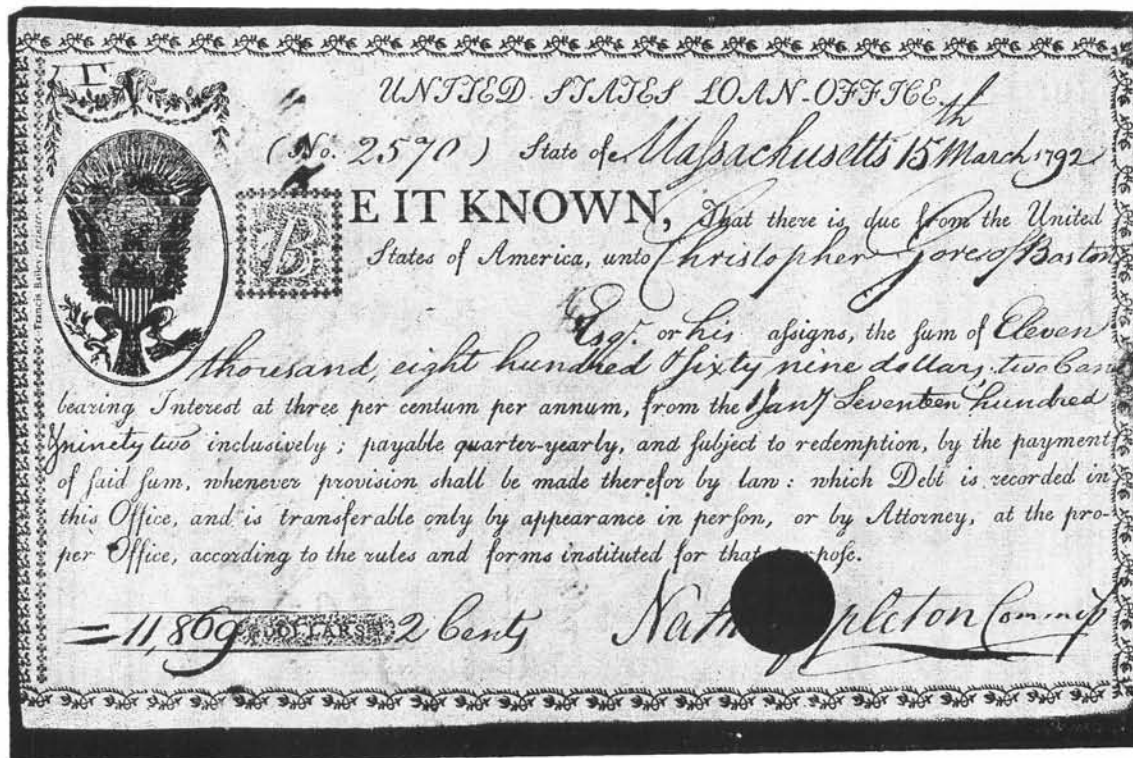 UNITED STATES LOAN-OFFICE.
(No. 2570) State of Massachusetts 15th March 1792
BE IT KNOWN, That there is due from the United
States of America, unto Christopher Gore of Boston
Esqr. or his aſsigns, the ſum of Eleven
thousand, eight hundred & sixty nine dollars, two Cents
bearing Interest at three per centum per annum, from the 1 Jany Seventeen hundred
& ninety two inclusively; payable quarter-yearly, and ſubject to redemption, by the payment
of ſaid ſum, whenever provision shall be made therefor by law: which Debt is recorded in
this Office, and is transferable only by appearance in perſon, or by Attorney, at the pro-
per Office, according to the rules and forms instituted for that purpoſe.
= 11,869 DOLLARS 2 Cents
Nath Appleton Commiſs
Francis Bailey, Printer.